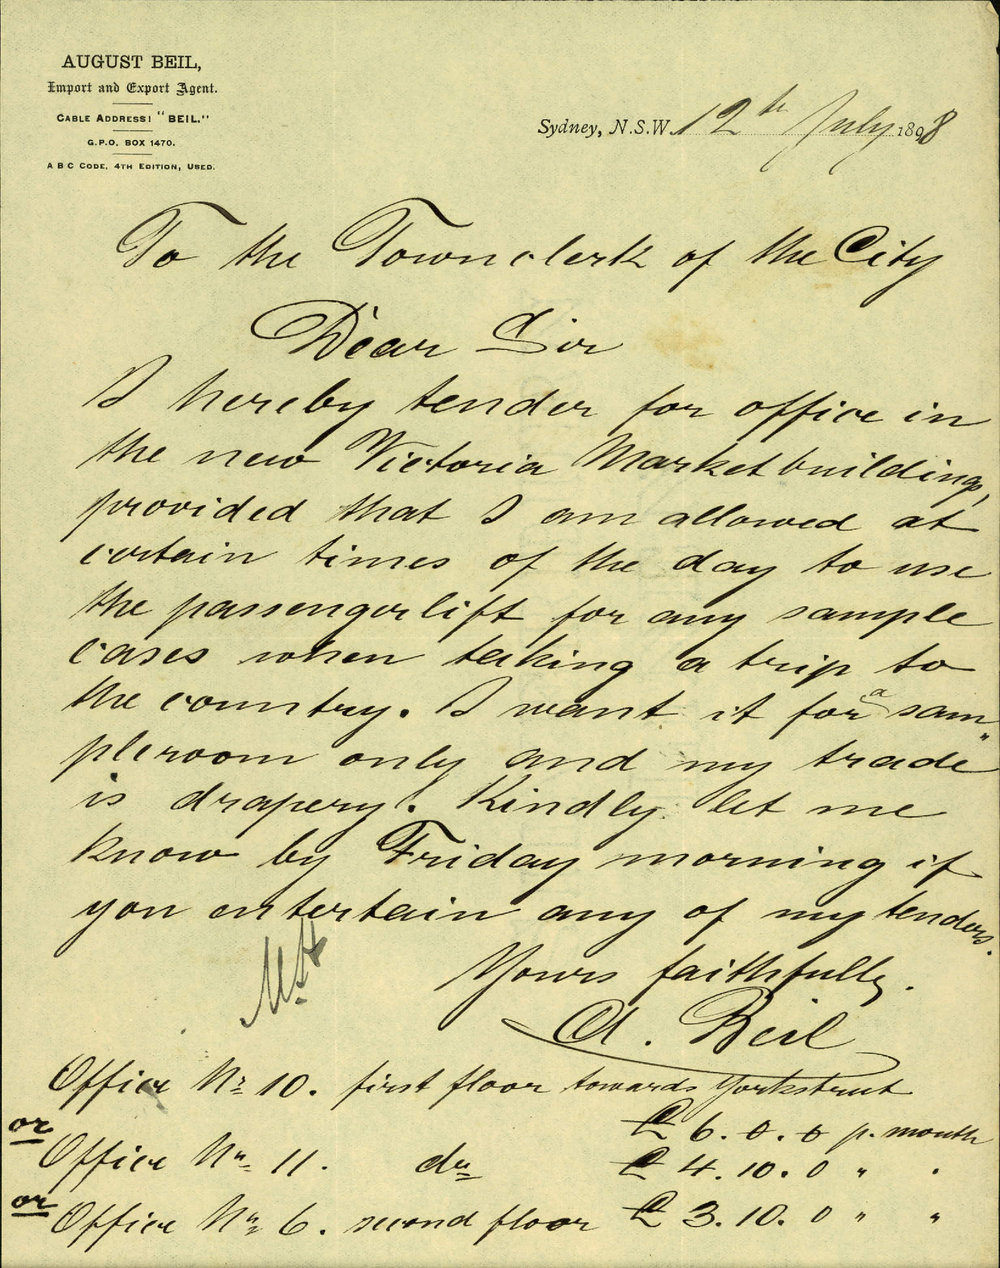 AUGUST BEIL,
Import and Export Agent.
CABLE ADDRESS: "BEIL."
G.P.O. BOX 1470.
A B C CODE, 4TH EDITION, USED.
Sydney, N.S.W. 12th July 1898
To the Townclerk of the City
Dear Sir
I hereby tender for office in
the new Victoria Market buildings,
provided that I am allowed at
certain times of the day to use
the passengerlift for any sample
cases when taking a trip to
the country. I want it for a sam„
pleroom only and my trade
is drapery. Kindly let me
know by Friday morning if
you entertain any of my tenders.
Yours faithfully.
A. Beil
Office No. 10. first floor towards Yorkstreet
£ 6. 0. 0 p. month
or
Office No. 11. do £ 4. 10. 0 " "
or
Office No. 6. second floor £ 3. 10. 0 " "